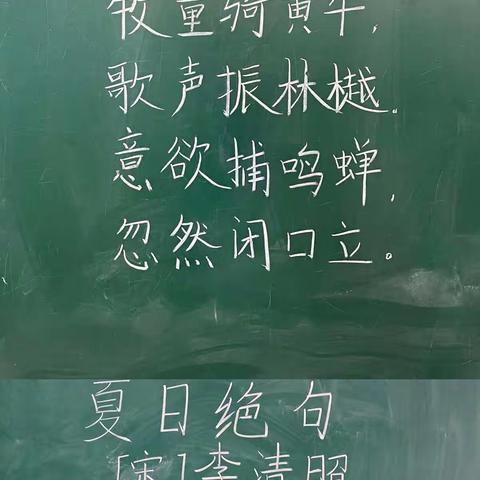 牧童骑黄牛,
歌声振林樾。
意欲捕鸣蝉,
忽然闭口立。
夏日绝句
[宋]李清照